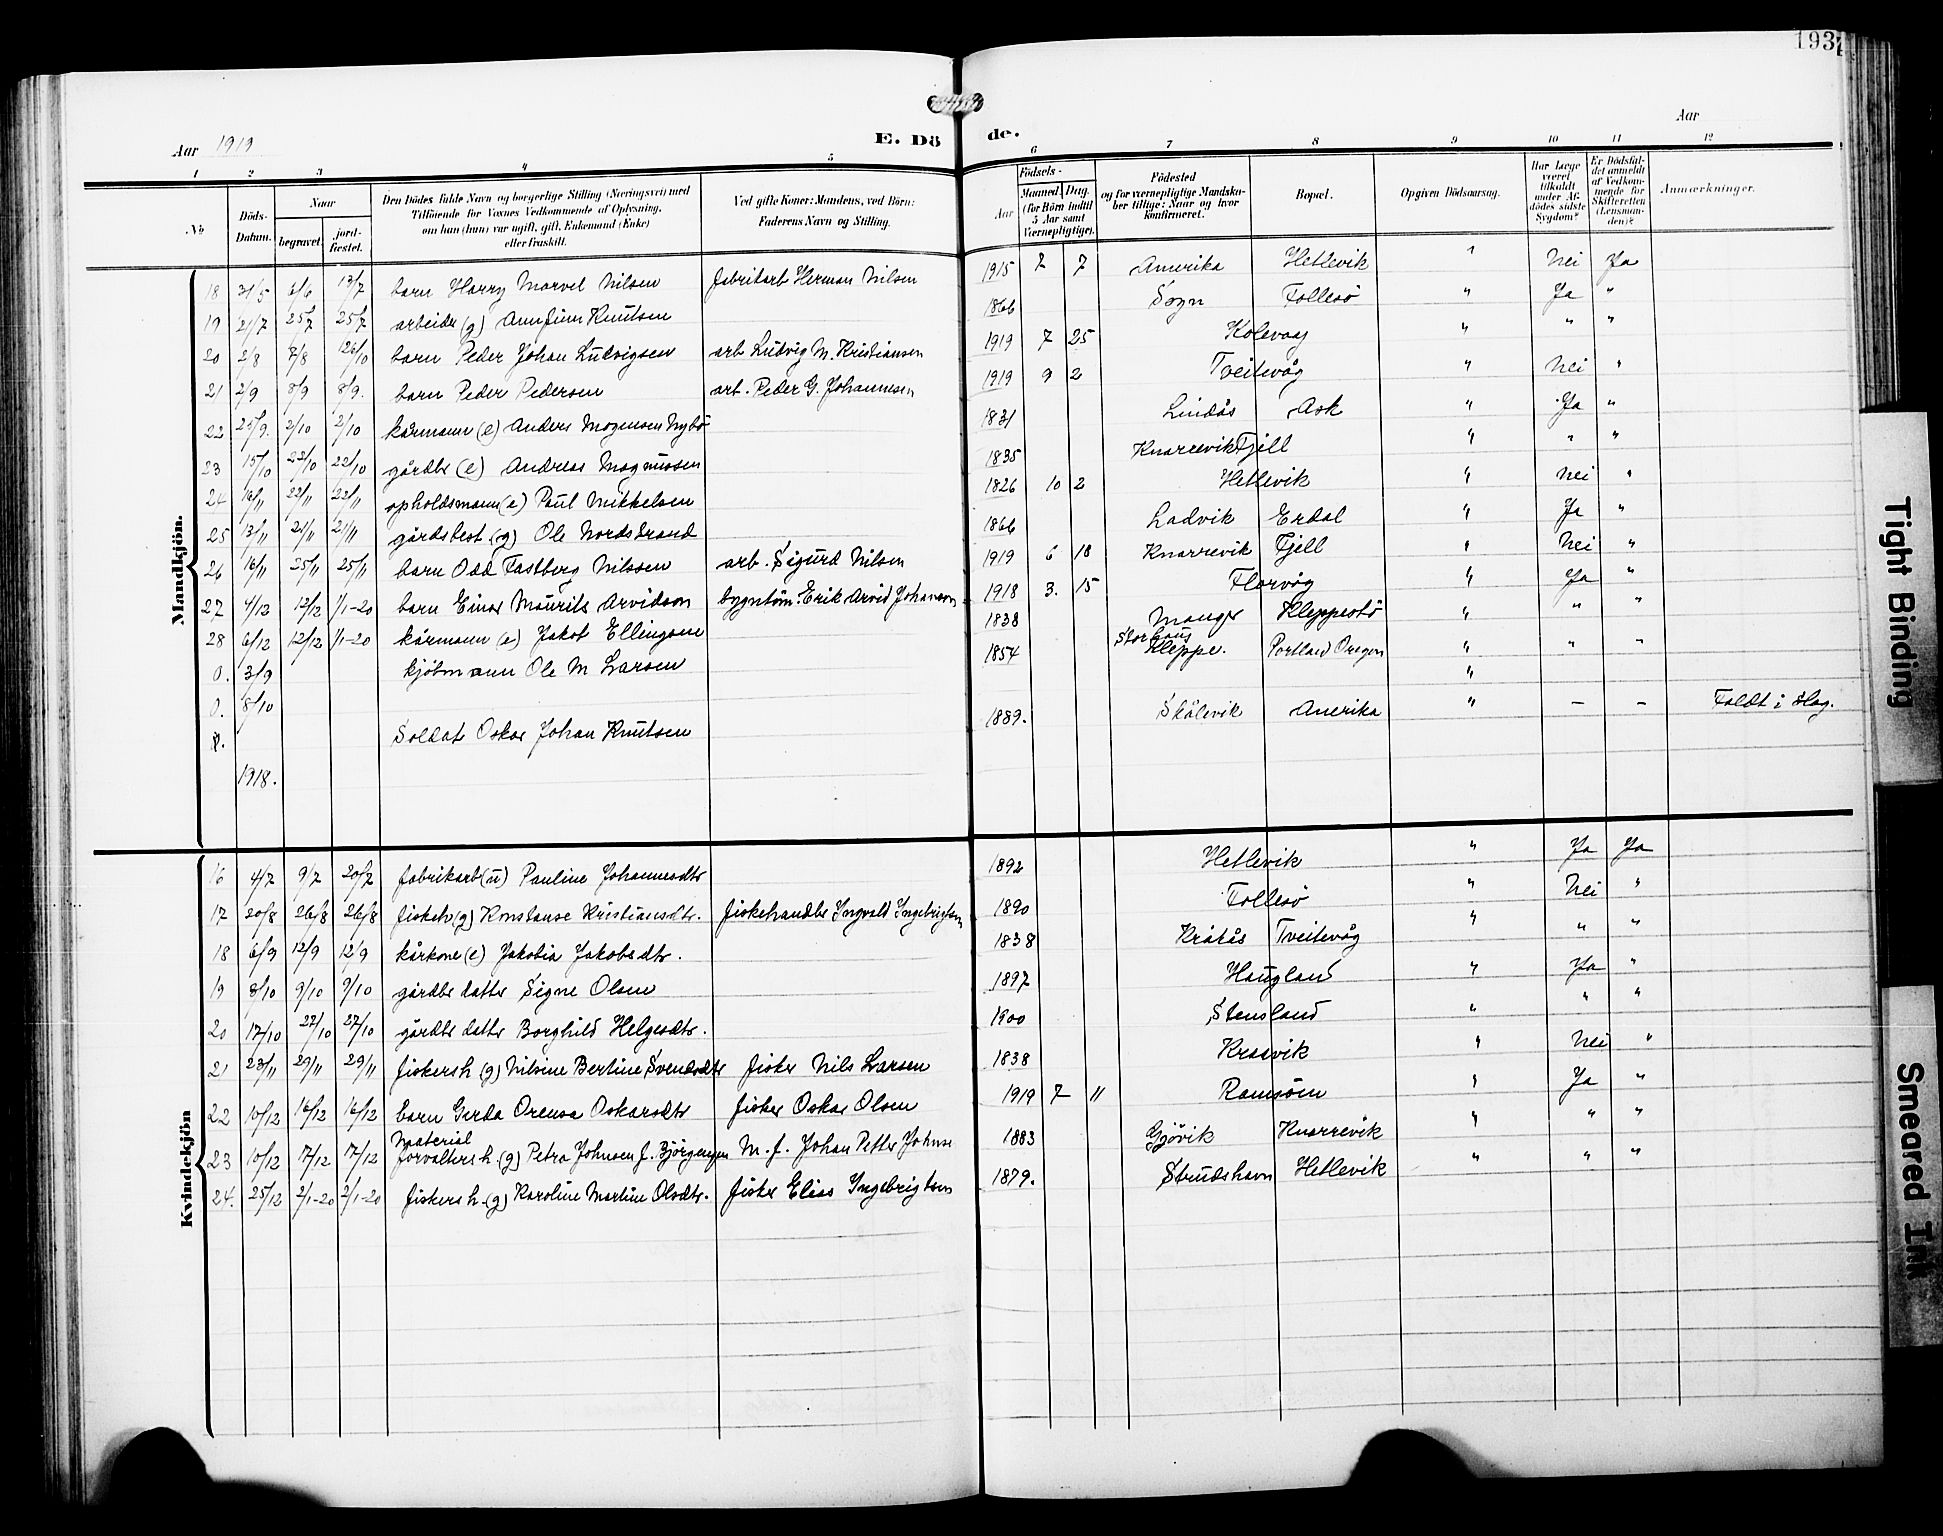 193
Aar 1919
E. Dö
de.
Aar
1 2 3 4 5 6 7 8 9 10 11 12
No
Döds-Datum.
Naar
begravet.
jord-fæstet.
Den Dödes fulde Navn og borgerlige Stilling (Næringsvei) med Tilföiende for Voxnes Vedkommende af Oplysning, om han (hun) var ugift, gift, Enkemand (Enke) eller fraskilt.
Ved gifte Koner: Mandens, ved Börn: Faderens Navn og Stilling.
Födsels-
Aar
Maaned. Dag.
(for Börn indtil 5 Aar samt Værnepligtige).
Födested og for værnepligtige Mandska-ber tillige: Naar og hvor konfirmeret.
Bopæl.
Opgiven Dödsaarsag.
Har læge været tilkaldt under Af-dödes sidste Sygdom?
Er Dödsfal-det anmeldt af Vedkom-mende for Skifteretten (Lensman-den)?
Anmærkninger.
Mandkjön.
18 31/5 6/6 13/7 barn Harry Marvel Nilsen fabrikarb Herman Nilsen 1915 7 7 Amerika Hetlevik " Nei Ja
19 21/7 25/7 25/7 arbeider (g) Amfinn Knutsen 1866 Sogn Follesö " Ja "
20 2/8 7/8 126/10 barn Peder Johan Ludvigsen arb Ludvig M. Kristiansen 1919 7 25 Kolevaag " " "
21 2/9 8/9 8/9. barn Peder Pedersen arb. Peder G. Johannesen 1919 9 2 Tveitevåg " Nei "
22 25/9. 2/10 2/10 kårmann (e) Anders Mogensen Nybö 1831 Lindås Ask " Ja "
23 15/10 22/10 22/10 gårdbr (e) Andreas Magnussen 1835 Knarrevik Fjell " " "
24 16/11 22/11 22/11 opholdsmann (e) Paul Mikkelsen 1826 10 2 Hetlevik " Nei "
25 13/11 21/11 21/11 gårdsbest (g) Ole Nordstrand 1866 Ladvik Erdal " Ja "
26 16/11 25/11 25/11 barn Odd Fastberg Nilssen arb. Sigurd Nilsen 1919 6 18 Knarrevik Fjell " Nei "
27 4/12 12/12 1/1-20 barn Einar Maurits Arvidson bygntöm. Erik Arvid Johanson 1918 3. 15 Florvåg " Ja "
28 6/12 12/12 1/1-20 kårmann (e) Jakob Ellingsen 1838 Manger Kleppestö " " "
0. 3/9 kjöbmann Ole M Larsen 1854 Storhaug Kleppe. Portland Oregon " " "
0. 8/10 "
0. Soldat Oskar Johan Knutsen 1889. Skålevik Amerika " — — Faldt i slag.
1918.
Kvindekjön
16 4/7 9/7 20/7 fabrikarb (u) Pauline Johannesdtr 1892 Hetlevik " Ja Ja
17 20/8 26/8 26/8 fiskeh (g) Konstanse Kristiansdtr. fiskehandler Ingvald Ingebrigtsen 1890 Follesö " Nei "
18 6/9 12/9 12/9 kårkone (e) Jakobia Jakobsdtr. 1838 Kråkås Tveitevåg " " "
19 8/10 9/10 9/10 gårdbr datter Signe Olsen 1897 Haugland " Ja "
20 17/10 27/10 27/10 gårdbr datter Borghild Helgesdtr. 1900 Stensland " " "
21 23/11 29/11 29/11 fiskersh (g) Nilsine Bertine Svendsdtr fisker Nils Larsen 1838 Krosvik " Nei "
22 10/12 16/12 16/12 barn Gerda Orensa Oskarsdtr fisker Oskar Olsen 1919 7 11 Ramsöen " Ja "
23 10/12 17/12 17/12 Material forvalters h (g) Petra Johnsen f. Björgengen M. f. Johan Petter Johnse 1883 Gjövik Knarrevik " " "
24. 25/12 2/1-20 2/1-20 fiskersh (g) Karoline Martine Olsdtr. fisker Elias Ingebrigtsen 1879. Strudshavn Hetlevik " " "
Tight Binding
Smeared Ink